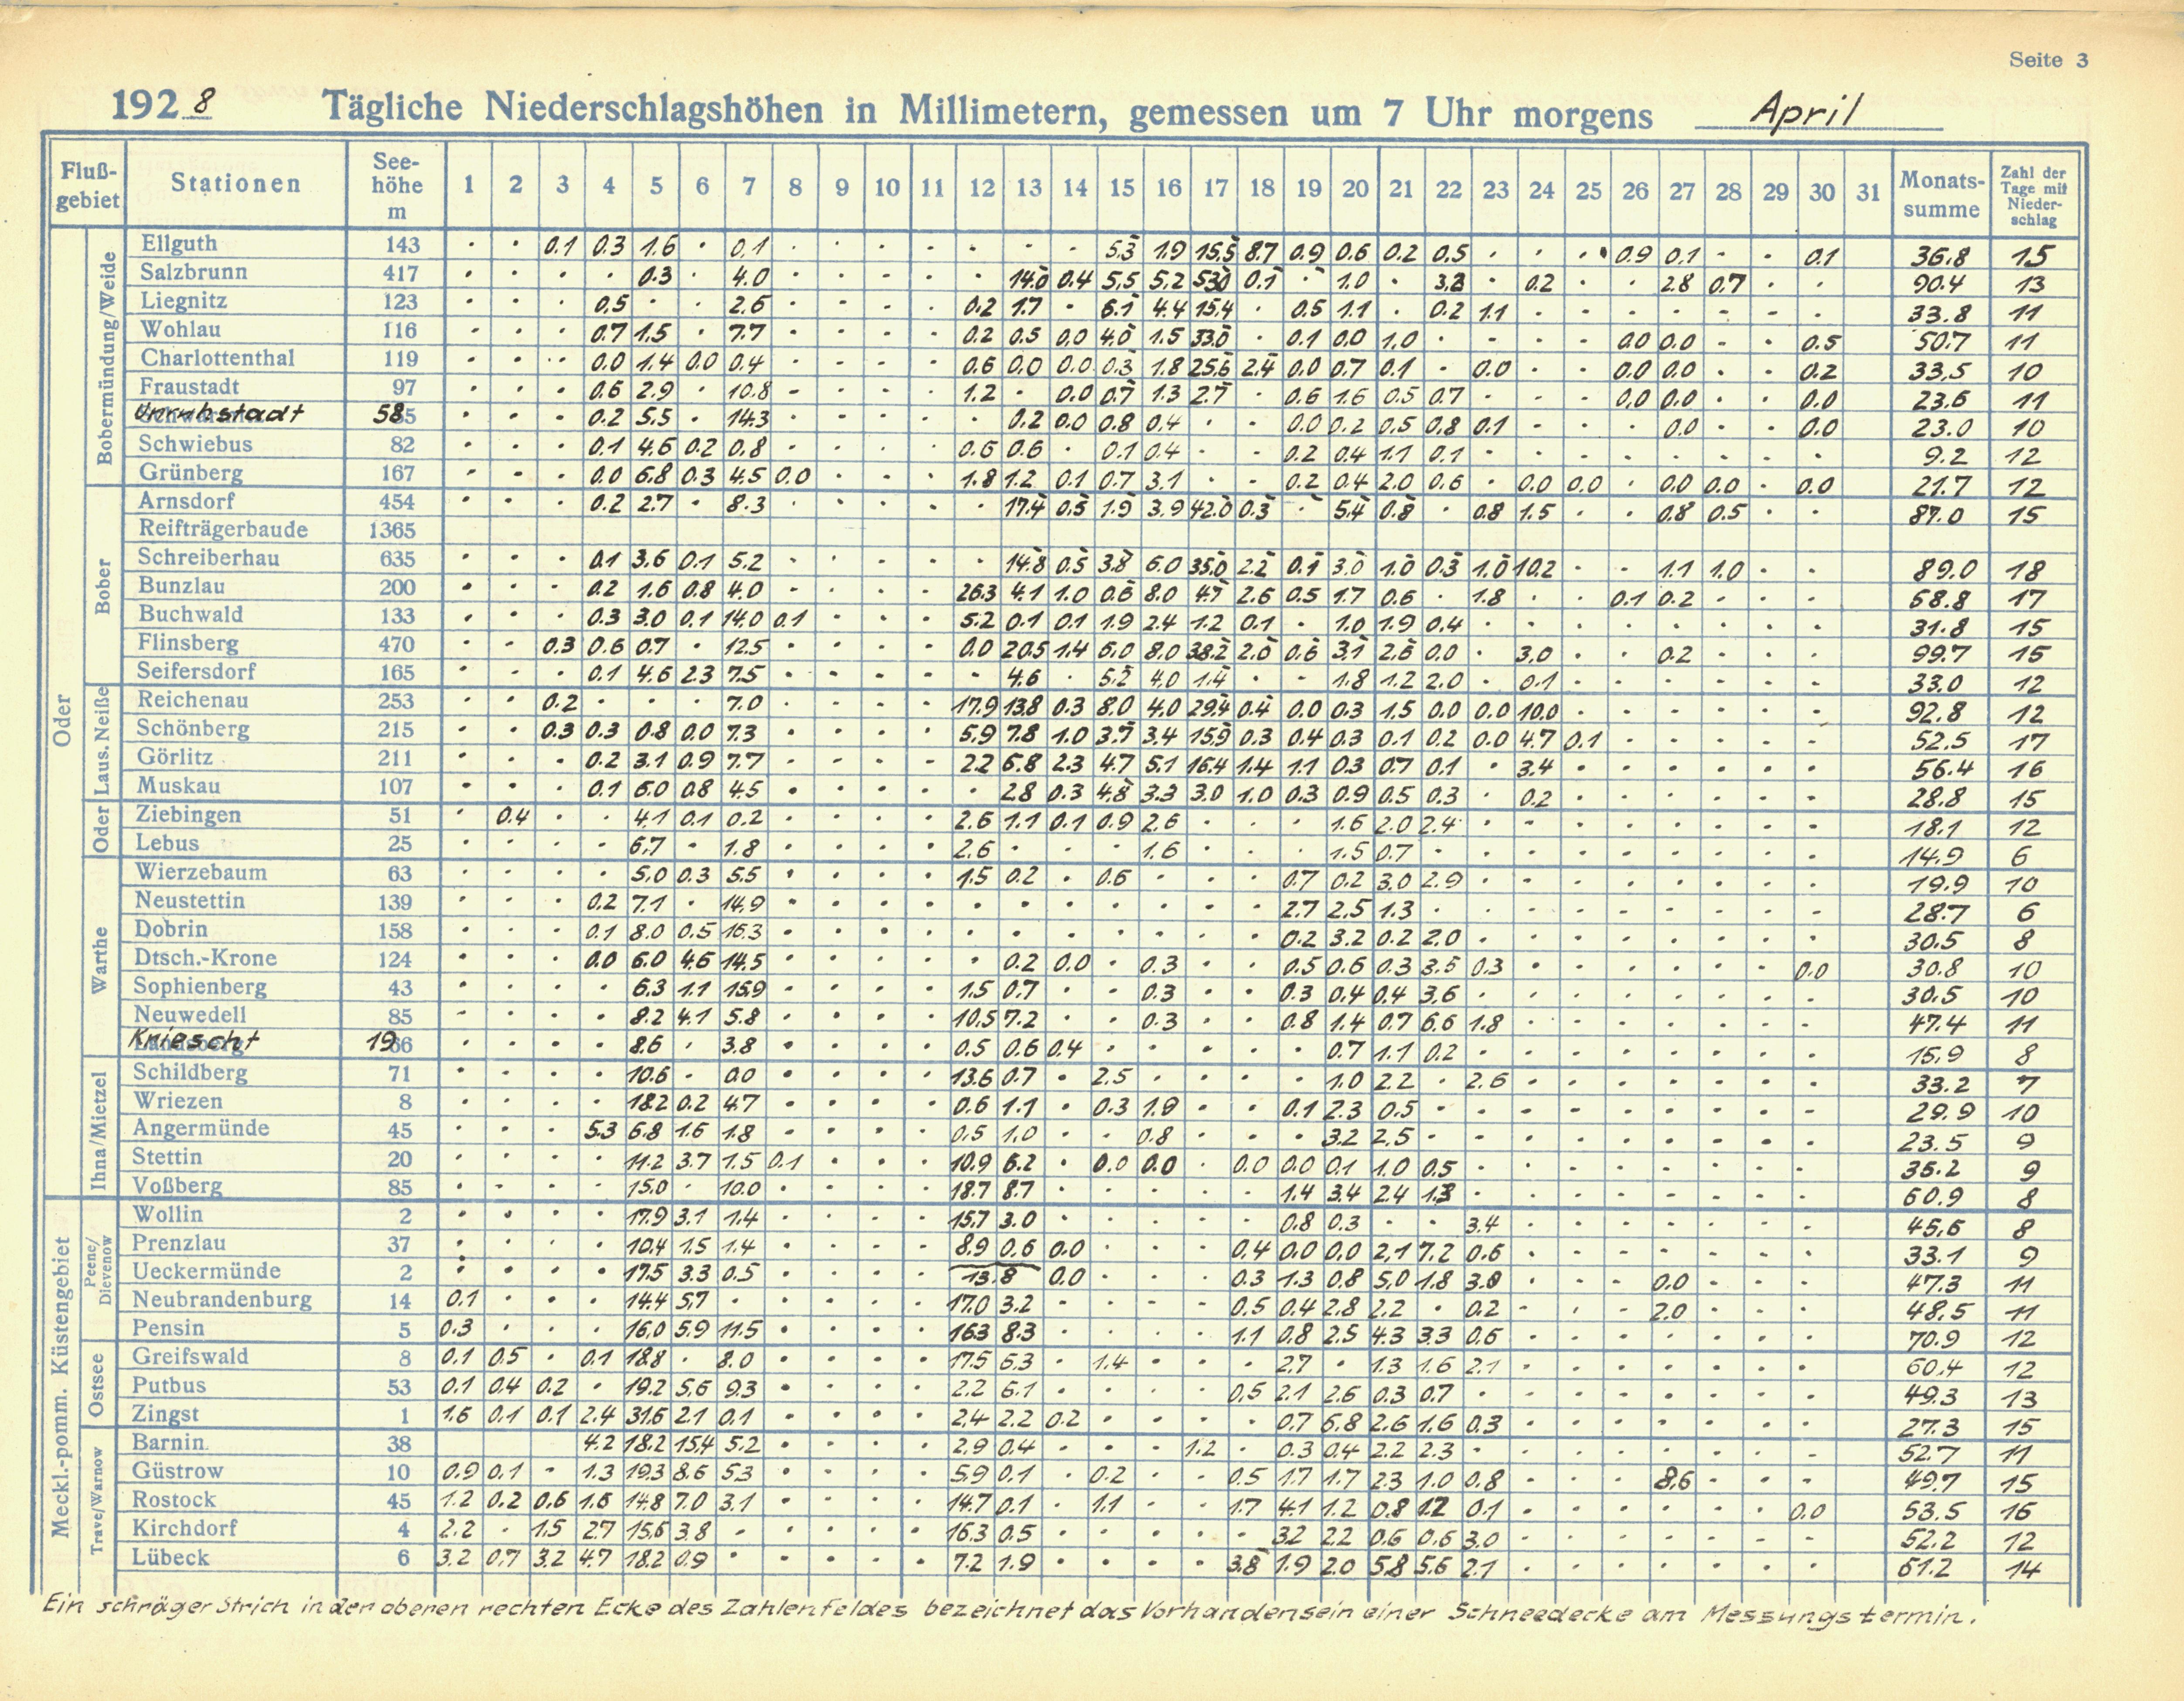 Seite 3
1928 Tägliche Niederschlagshöhen in Millimetern, gemessen um 7 Uhr morgens April
Fluß-gebiet Stationen See-höhe m 1 2 3 4 5 6 7 8 9 10 11 12 13 14 15 16 17 18 19 20 21 22 23 24 25 26 27 28 29 30 31 Monats-summe Zahl der Tage mit Nieder-schlag
Oder
Bobermündung/Weide
Ellguth 143 . . 0.1 0.3 1.6 . 0.1 . . . . . . . 5.3 1.9 15.5 8.7 0.9 0.6 0.2 0.5 . . . 0.9 0.1 . . 0.1 36.8 15
Salzbrunn 417 . . . . 0.3 . 4.0 . . . . . 14.0 0.4 5.5 5.2 53.0 0.1 . 1.0 . 3.3 . 0.2 . . 2.8 0.7 . . 90.4 13
Liegnitz 123 . . . 0.5 . . 2.6 . . . . 0.2 1.7 . 6.1 4.4 15.4 . 0.5 1.1 . 0.2 1.1 . . . . . . . 33.8 11
Wohlau 116 . . . 0.7 1.5 . 7.7 . . . . 0.2 0.5 0.0 4.0 1.5 33.0 . 0.1 0.0 1.0 . . . . 0.0 0.0 . . 0.5 50.7 11
Charlottenthal 119 . . . 0.0 1.4 0.0 0.4 . . . . 0.6 0.0 0.0 0.3 1.8 25.6 2.4 0.0 0.7 0.1 . 0.0 . . 0.0 0.0 . . 0.2 33.5 10
Fraustadt 97 . . . 0.6 2.9 . 10.8 . . . . 1.2 . 0.0 0.7 1.3 2.7 . 0.6 1.6 0.5 0.7 . . . 0.0 0.0 . . 0.0 23.6 11
Unruhstadt 58 . . . 0.2 5.5 . 14.3 . . . . . 0.2 0.0 0.8 0.4 . . 0.0 0.2 0.5 0.8 0.1 . . . 0.0 . . 0.0 23.0 10
Schwiebus 82 . . . 0.1 4.6 0.2 0.8 . . . . 0.6 0.6 . 0.1 0.4 . . 0.2 0.4 1.1 0.1 . . . . . . . . 9.2 12
Grünberg 167 . . . 0.0 6.8 0.3 4.5 0.0 . . . 1.8 1.2 0.1 0.7 3.1 . . 0.2 0.4 2.0 0.6 . 0.0 0.0 . 0.0 0.0 . 0.0 21.7 12
Bober
Arnsdorf 454 . . . 0.2 2.7 . 8.3 . . . . . 17.4 0.5 1.9 3.9 42.0 0.3 . 5.4 0.8 . 0.8 1.5 . . 0.8 0.5 . . 87.0 15
Reifträgerbaude 1365
Schreiberhau 635 . . . 0.1 3.6 0.1 5.2 . . . . . 14.8 0.5 3.8 6.0 35.0 2.2 0.1 3.0 1.0 0.3 1.0 10.2 . . 1.1 1.0 . . 89.0 18
Bunzlau 200 . . . 0.2 1.6 0.8 4.0 . . . . 26.3 4.1 1.0 0.6 8.0 4.7 2.6 0.5 1.7 0.6 . 1.8 . . 0.1 0.2 . . . 58.8 17
Buchwald 133 . . . 0.3 3.0 0.1 14.0 0.1 . . . 5.2 0.1 0.1 1.9 2.4 1.2 0.1 . 1.0 1.9 0.4 . . . . . . . . 31.8 15
Flinsberg 470 . . 0.3 0.6 0.7 . 12.5 . . . . 0.0 20.5 1.4 6.0 8.0 38.2 2.0 0.6 3.1 2.6 0.0 . 3.0 . . 0.2 . . . 99.7 15
Seifersdorf 165 . . . 0.1 4.6 2.3 7.5 . . . . . 4.6 . 5.2 4.0 1.4 . . 1.8 1.2 2.0 . 0.1 . . . . . . 33.0 12
Laus. Neiße
Reichenau 253 . . 0.2 . . . 7.0 . . . . 17.9 13.8 0.3 8.0 4.0 29.4 0.4 0.0 0.3 1.5 0.0 0.0 10.0 . . . . . . 92.8 12
Schönberg 215 . . 0.3 0.3 0.8 0.0 7.3 . . . . 5.9 7.8 1.0 3.7 3.4 15.9 0.3 0.4 0.3 0.1 0.2 0.0 4.7 0.1 . . . . . 52.5 17
Görlitz 211 . . . 0.2 3.1 0.9 7.7 . . . . 2.2 6.8 2.3 4.7 5.1 16.4 1.4 1.1 0.3 0.7 0.1 . 3.4 . . . . . . 56.4 16
Muskau 107 . . . 0.1 6.0 0.8 4.5 . . . . . 2.8 0.3 4.8 3.3 3.0 1.0 0.3 0.9 0.5 0.3 . 0.2 . . . . . . 28.8 15
Oder
Ziebingen 51 . 0.4 . . 4.1 0.1 0.2 . . . . 2.6 1.1 0.1 0.9 2.6 . . . 1.6 2.0 2.4 . . . . . . . . 18.1 12
Lebus 25 . . . . 6.7 . 1.8 . . . . 2.6 . . . 1.6 . . . 1.5 0.7 . . . . . . . . . 14.9 6
Warthe
Wierzebaum 63 . . . . 5.0 0.3 5.5 . . . . 1.5 0.2 . 0.6 . . . 0.7 0.2 3.0 2.9 . . . . . . . . 19.9 10
Neustettin 139 . . . 0.2 7.1 . 14.9 . . . . . . . . . . . 2.7 2.5 1.3 . . . . . . . . . 28.7 6
Dobrin 158 . . . 0.1 8.0 0.5 16.3 . . . . . . . . . . . 0.2 3.2 0.2 2.0 . . . . . . . . 30.5 8
Dtsch.-Krone 124 . . . 0.0 6.0 4.6 14.5 . . . . . 0.2 0.0 . 0.3 . . 0.5 0.6 0.3 3.5 0.3 . . . . . . 0.0 30.8 10
Sophienberg 43 . . . . 6.3 1.1 15.9 . . . . 1.5 0.7 . . 0.3 . . 0.3 0.4 0.4 3.6 . . . . . . . . 30.5 10
Neuwedell 85 . . . . 8.2 4.1 5.8 . . . . 10.5 7.2 . . 0.3 . . 0.8 1.4 0.7 6.6 1.8 . . . . . . . 47.4 11
Kriescht 19 . . . . 8.6 . 3.8 . . . . 0.5 0.6 0.4 . . . . . 0.7 1.1 0.2 . . . . . . . . 15.9 8
Ihna/Mietzel
Schildberg 71 . . . . 10.6 . 0.0 . . . . 13.6 0.7 . 2.5 . . . . 1.0 2.2 . 2.6 . . . . . . . 33.2 7
Wriezen 8 . . . . 18.2 0.2 4.7 . . . . 0.6 1.1 . 0.3 1.9 . . 0.1 2.3 0.5 . . . . . . . . . 29.9 10
Angermünde 45 . . . 5.3 6.8 1.6 1.8 . . . . 0.5 1.0 . . 0.8 . . . 3.2 2.5 . . . . . . . . . 23.5 9
Stettin 20 . . . . 11.2 3.7 1.5 0.1 . . . 10.9 6.2 . 0.0 0.0 . 0.0 0.0 0.1 1.0 0.5 . . . . . . . . 35.2 9
Voßberg 85 . . . . 15.0 . 10.0 . . . . 18.7 8.7 . . . . . 1.4 3.4 2.4 1.3 . . . . . . . . 60.9 8
Meckl.-pomm. Küstengebiet
Peene/Dievenow
Wollin 2 . . . . 17.9 3.1 1.4 . . . . 15.7 3.0 . . . . . 0.8 0.3 . . 3.4 . . . . . . . 45.6 8
Prenzlau 37 . . . . 10.4 1.5 1.4 . . . . 8.9 0.6 0.0 . . . 0.4 0.0 0.0 2.1 7.2 0.6 . . . . . . . 33.1 9
Ueckermünde 2 . . . . 17.5 3.3 0.5 . . . . 13.8 0.0 . . . 0.3 1.3 0.8 5.0 1.8 3.0 . . . 0.0 . . . 47.3 11
Neubrandenburg 14 0.1 . . . 14.4 5.7 . . . . . 17.0 3.2 . . . . 0.5 0.4 2.8 2.2 . 0.2 . . . 2.0 . . . 48.5 11
Pensin 5 0.3 . . . 16.0 5.9 11.5 . . . . 16.3 8.3 . . . . 1.1 0.8 2.5 4.3 3.3 0.6 . . . . . . . 70.9 12
Ostsee
Greifswald 8 0.1 0.5 . 0.1 18.8 . 8.0 . . . . 17.5 6.3 . 1.4 . . . 2.7 . 1.3 1.6 2.1 . . . . . . . 60.4 12
Putbus 53 0.1 0.4 0.2 . 19.2 5.6 9.3 . . . . 2.2 6.1 . . . . 0.5 2.1 2.6 0.3 0.7 . . . . . . . . 49.3 13
Zingst 1 1.6 0.1 0.1 2.4 31.6 2.1 0.1 . . . . 2.4 2.2 0.2 . . . . 0.7 6.8 2.6 1.6 0.3 . . . . . . . 27.3 15
Trave/Warnow
Barnin 38 4.2 18.2 15.4 5.2 . . . . 2.9 0.4 . . . 1.2 . 0.3 0.4 2.2 2.3 . . . . . . . . 52.7 11
Güstrow 10 0.9 0.1 . 1.3 19.3 8.6 5.3 . . . . 5.9 0.1 . 0.2 . . 0.5 1.7 1.7 2.3 1.0 0.8 . . . 8.6 . . . 49.7 15
Rostock 45 1.2 0.2 0.6 1.6 14.8 7.0 3.1 . . . . 14.7 0.1 . 1.1 . . 1.7 4.1 1.2 0.8 1.2 0.1 . . . . . . 0.0 53.5 16
Kirchdorf 4 2.2 . 1.5 2.7 15.6 3.8 . . . . . 16.3 0.5 . . . . . 3.2 2.2 0.6 0.6 3.0 . . . . . . . 52.2 12
Lübeck 6 3.2 0.7 3.2 4.7 18.2 0.9 . . . . . 7.2 1.9 . . . . 3.8 1.9 2.0 5.8 5.6 2.1 . . . . . . . 61.2 14
Ein schräger Strich in der oberen rechten Ecke des Zahlenfeldes bezeichnet das Vorhandensein einer Schneedecke am Messungstermin.